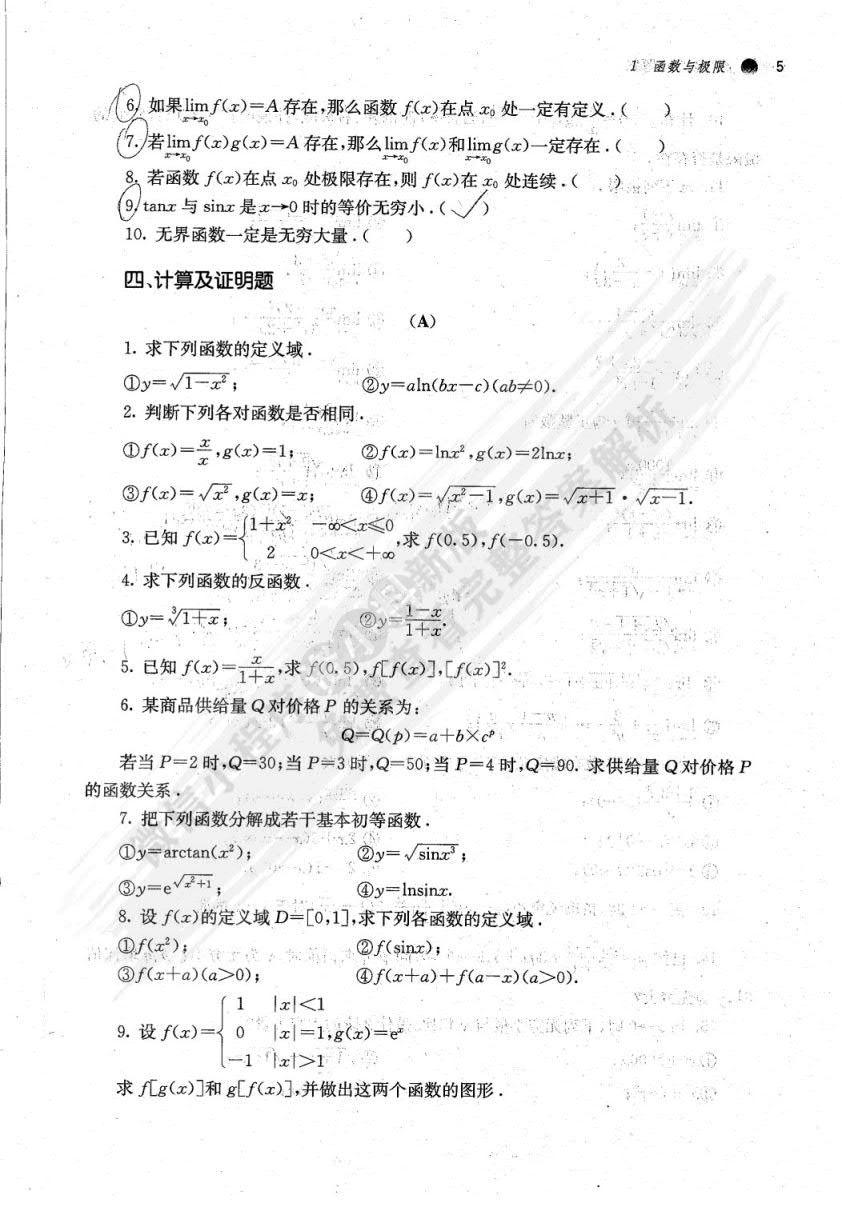 1 函数与极限 5
6. 如果lim f(x)=A存在,那么函数 f(x)在点 x₀ 处一定有定义.( )
x→x₀
7. 若lim f(x)g(x)=A存在,那么lim f(x)和lim g(x)一定存在.( )
x→x₀ x→x₀ x→x₀
8. 若函数 f(x)在点 x₀ 处极限存在,则 f(x)在 x₀ 处连续.( )
9. tanx 与 sinx 是 x→0 时的等价无穷小.( ✓ )
10. 无界函数一定是无穷大量.( )
四、计算及证明题
(A)
1. 求下列函数的定义域.
①y=√(1-x²); ②y=aln(bx-c)(ab≠0).
2. 判断下列各对函数是否相同.
①f(x)=x/x,g(x)=1; ②f(x)=lnx²,g(x)=2lnx;
③f(x)=√(x²),g(x)=x; ④f(x)=√(x²-1),g(x)=√(x+1)·√(x-1).
3. 已知 f(x)={1+x² -∞<x≤0
2 0<x<+∞ ,求 f(0.5),f(-0.5).
4. 求下列函数的反函数.
①y=∛(1+x); ②y=(1-x)/(1+x).
5. 已知 f(x)=x/(1+x),求 f(0.5),f[f(x)],[f(x)]².
6. 某商品供给量 Q 对价格 P 的关系为:
Q=Q(p)=a+b×cᵖ
若当 P=2 时,Q=30;当 P=3 时,Q=50;当 P=4 时,Q=90. 求供给量 Q 对价格 P
的函数关系.
7. 把下列函数分解成若干基本初等函数.
①y=arctan(x²); ②y=√(sinx³);
③y=e^√(x²+1); ④y=lnsinx.
8. 设 f(x)的定义域 D=[0,1],求下列各函数的定义域.
①f(x²); ②f(sinx);
③f(x+a)(a>0); ④f(x+a)+f(a-x)(a>0).
1 |x|<1
9. 设 f(x)={ 0 |x|=1,g(x)=eˣ
-1 |x|>1
求 f[g(x)]和 g[f(x)],并做出这两个函数的图形.
微信小程序 新版
免费查看完整答案解析